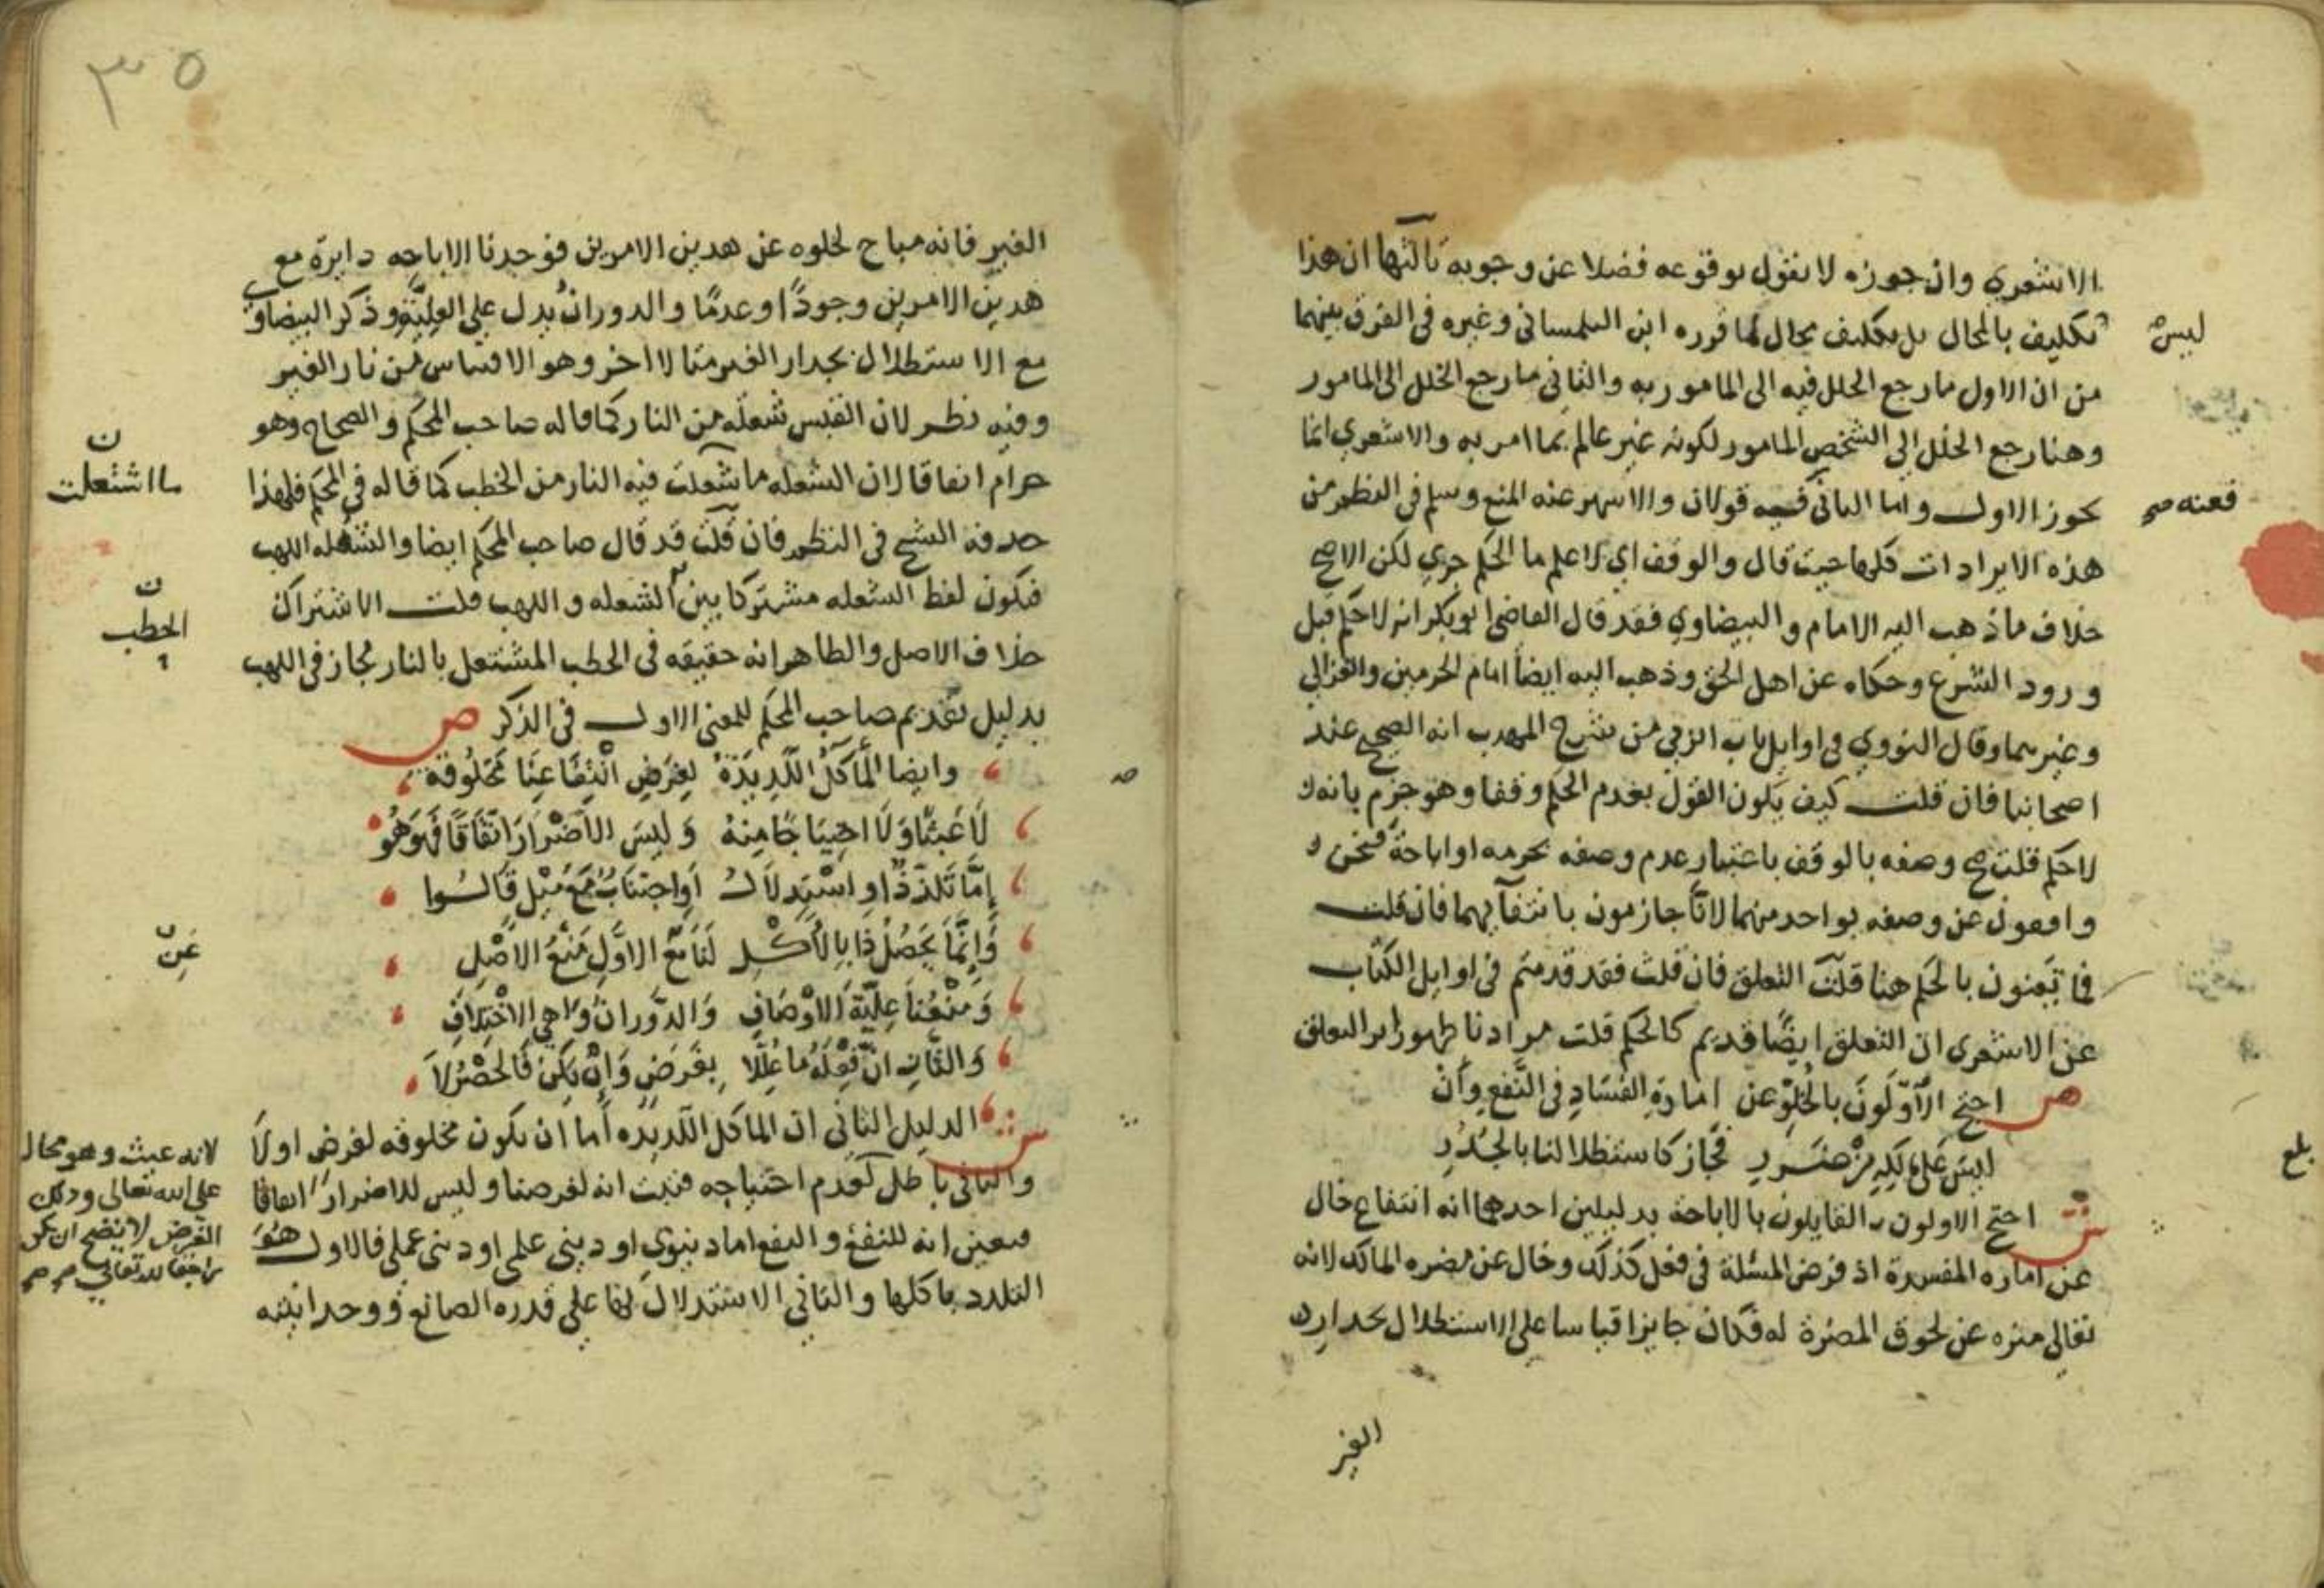 الاشعري وان جوزه لا نقول بوقوعه فضلا عن وجوبه ثالثها ان هذا
ليس
تكليف بالمحال بل تكليف محال لما قرره ابن التلمساني وغيره في الفرق بينهما
من ان الاول ما رجع الخلل فيه الى المامور به والثاني ما رجع الخلل الى المامور
وهنا رجع الخلل الى الشخص المامور لكونه غير عالم بما امر به والاشعري انما
فعنه صح
يجوز الاول واما الثاني قولان والاشهر عنه المنع وسلم في النظم من
هذه الايرادات كلها حيث قال والوقف اي لا اعلم ما الحكم جري لكن الاصح
خلاف ما ذهب اليه الامام والبيضاوي فقد قال القاضي ابو بكر انه لا حكم قبل
ورود الشرع وحكاه عن اهل الحق وذهب اليه ايضا امام الحرمين والغزالي
وغيرهما وقال النووي في اوايل باب الربي من شرح المهذب انه الصحيح عند
اصحابنا فان قلت كيف يكون القول بعدم الحكم وقفا وهو جزم بانه
لا حكم قلت صح وصفه بالوقف باعتبار عدم وصفه بحرمه او اباحة فنحن
واقفون عن وصفه بواحد منهما لانا جازمون بانتفآيهما فان قلت
فما تعنون بالحكم هنا قلت التعلق فان قلت فقد قدمتم في اوايل الكتاب
عن الاشعري ان التعلق ايضا قديم كالحكم قلت مرادنا ظهور اثر التعلق
ص احتج الاولون بالخلو عن امارة الفساد في النفع وان
ليس على مالكه من ضرر فجاز كاستظلالنا بالجدر
بلغ
ش احتج الاولون القايلون بالاباحة بدليلين احدهما انه انتفاع خال
عن امارة المفسدة اذ فرض المسئلة في فعل كذلك وخال عن مضره المالك لانه
تعالى منزه عن لحوق المضرة له فكان جايزا قياسا على الاستظلال بجدار
الغير
٣٥
الغير فانه مباح لخلوه عن هدين الامرين فوجدنا الاباحه دايرة مع
هدين الامرين وجودًا وعدمًا والدوران يدل علي العلية وذكر البيضاوي
مع الاستظلال بجدار الغير مثالا اخر وهو الاقتباس من نار الغير
وفيه نظر لان القبس شعله من النار كما قاله صاحب المحكم والصحاح وهو
ن
ما اشتعلت
حرام اتفاقا لان الشعله ما شعلت فيه النار من الخطب كما قاله في المحكم فلهذا
حدفه الشيخ في النظم فان قلت قد قال صاحب المحكم ايضا والشعله اللهب
ن
الحطب
فيكون لفظ الشعله مشتركا بين الشعله واللهب قلت الاشتراك
خلاف الاصل والظاهر انه حقيقه في الحطب المشتعل بالنار مجاز في اللهب
بدليل تقديم صاحب المحكم للمعنى الاول في الذكر ص
وايضا المآكل اللذيذة لغرض انتفاعنا مخلوقة
لا عبثًا ولا احتياجًا منه وليس الاضرار اتفاقًا فهو هو
إما تلذذا او استدلال او اجتناب مع ميل قالوا
عن
وانما يحصل ذا بالاكل لنا مع الاول منع الاصل
ومنعنا علية الاوصاف والدوران واهي الاختلاف
والثان ان فعله ما عللا بغرض وان يكن فالحصر لا
ش الدليل الثاني ان الماكل اللديده أما ان تكون مخلوقه لغرض او لا
لانه عبث وهو محال
على الله تعالى ودلك
الغرض لا يصح ان يكون
راجعا لله تعالى صح
والثاني باطل لعدم احتياجه فثبت انه لغرضنا وليس للاضرار اتفاقا
فتعين انه للنفع والنفع اما دنيوي او ديني علمي او ديني عملي فالاول هو
التلدد باكلها والثاني الاستدلال بها على قدره الصانع ووحدانيته